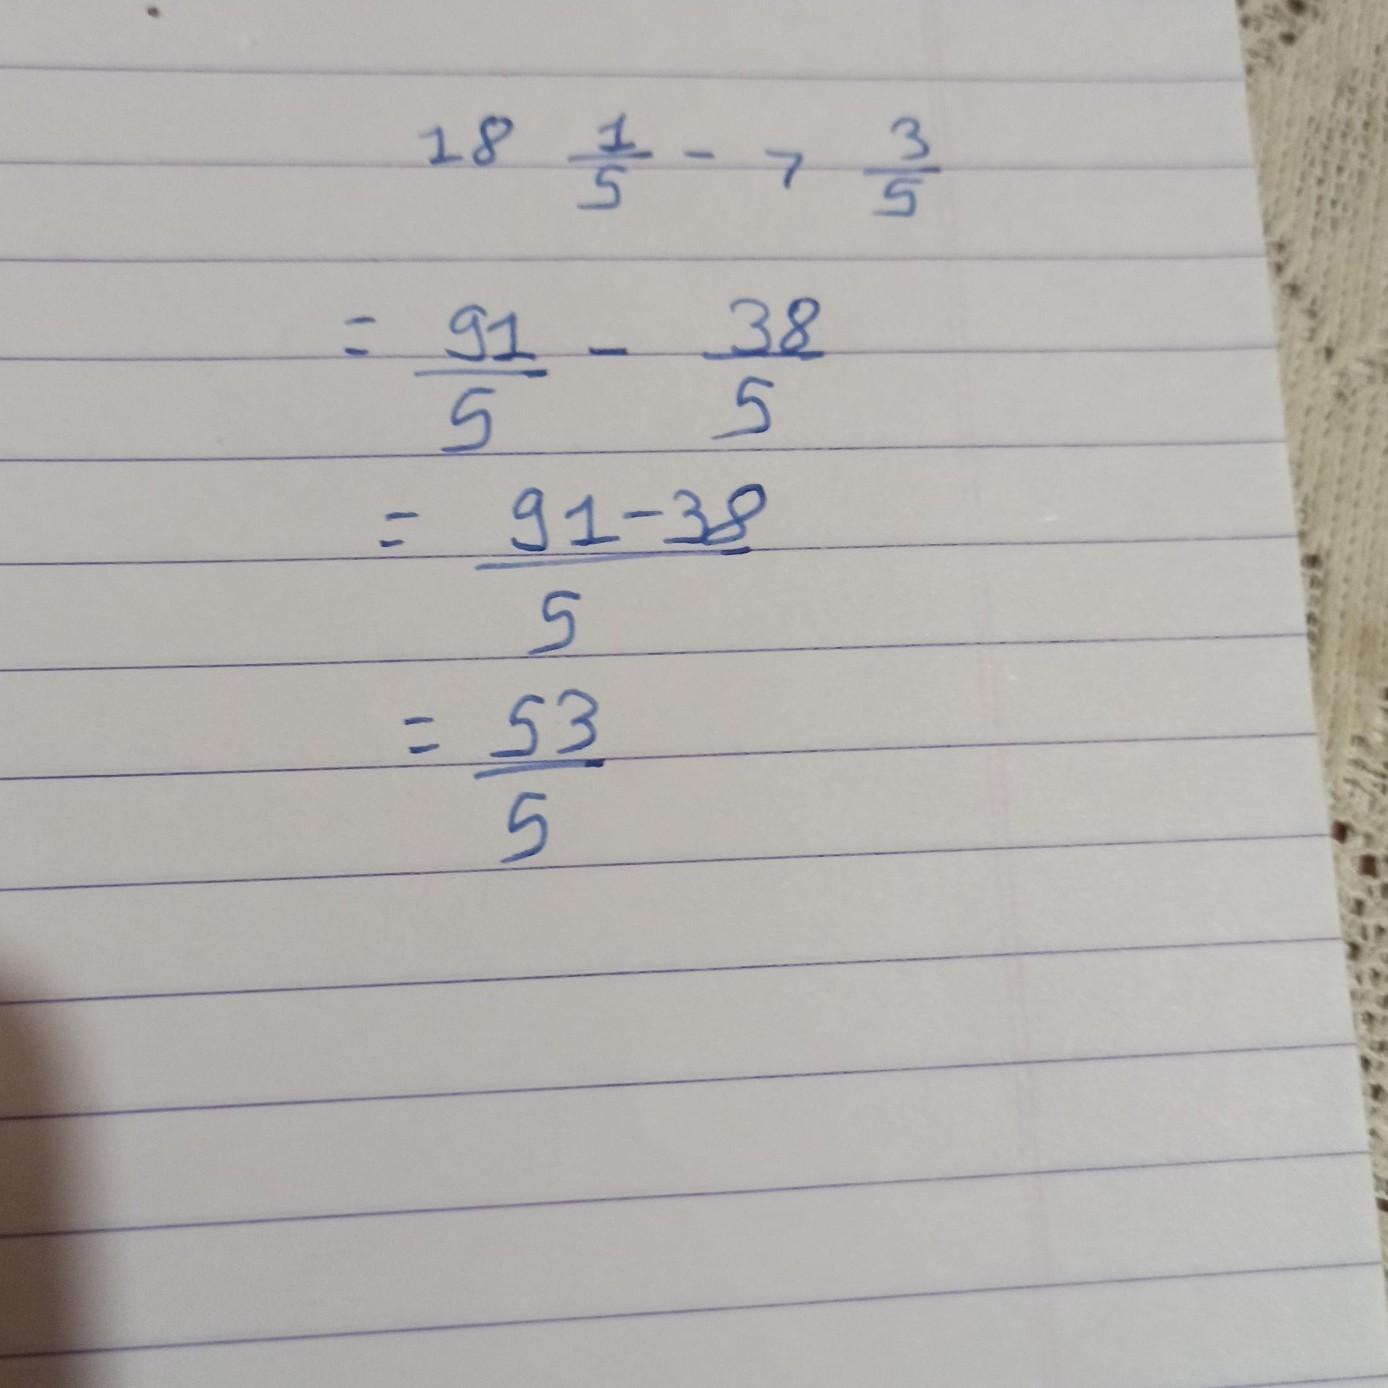 18 1/5 - 7 3/5
= 91/5 - 38/5
= 91-38/5
= 53/5